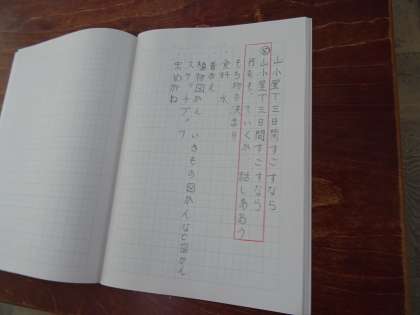 山小屋で三日間すごすなら
山小屋で三日間すごすなら
何をもっていくか 話しあおう
もち物を決まり
食料 水
着がえ
植物図かん いきもの図かんなど図かん
スケッチブック
虫めがね